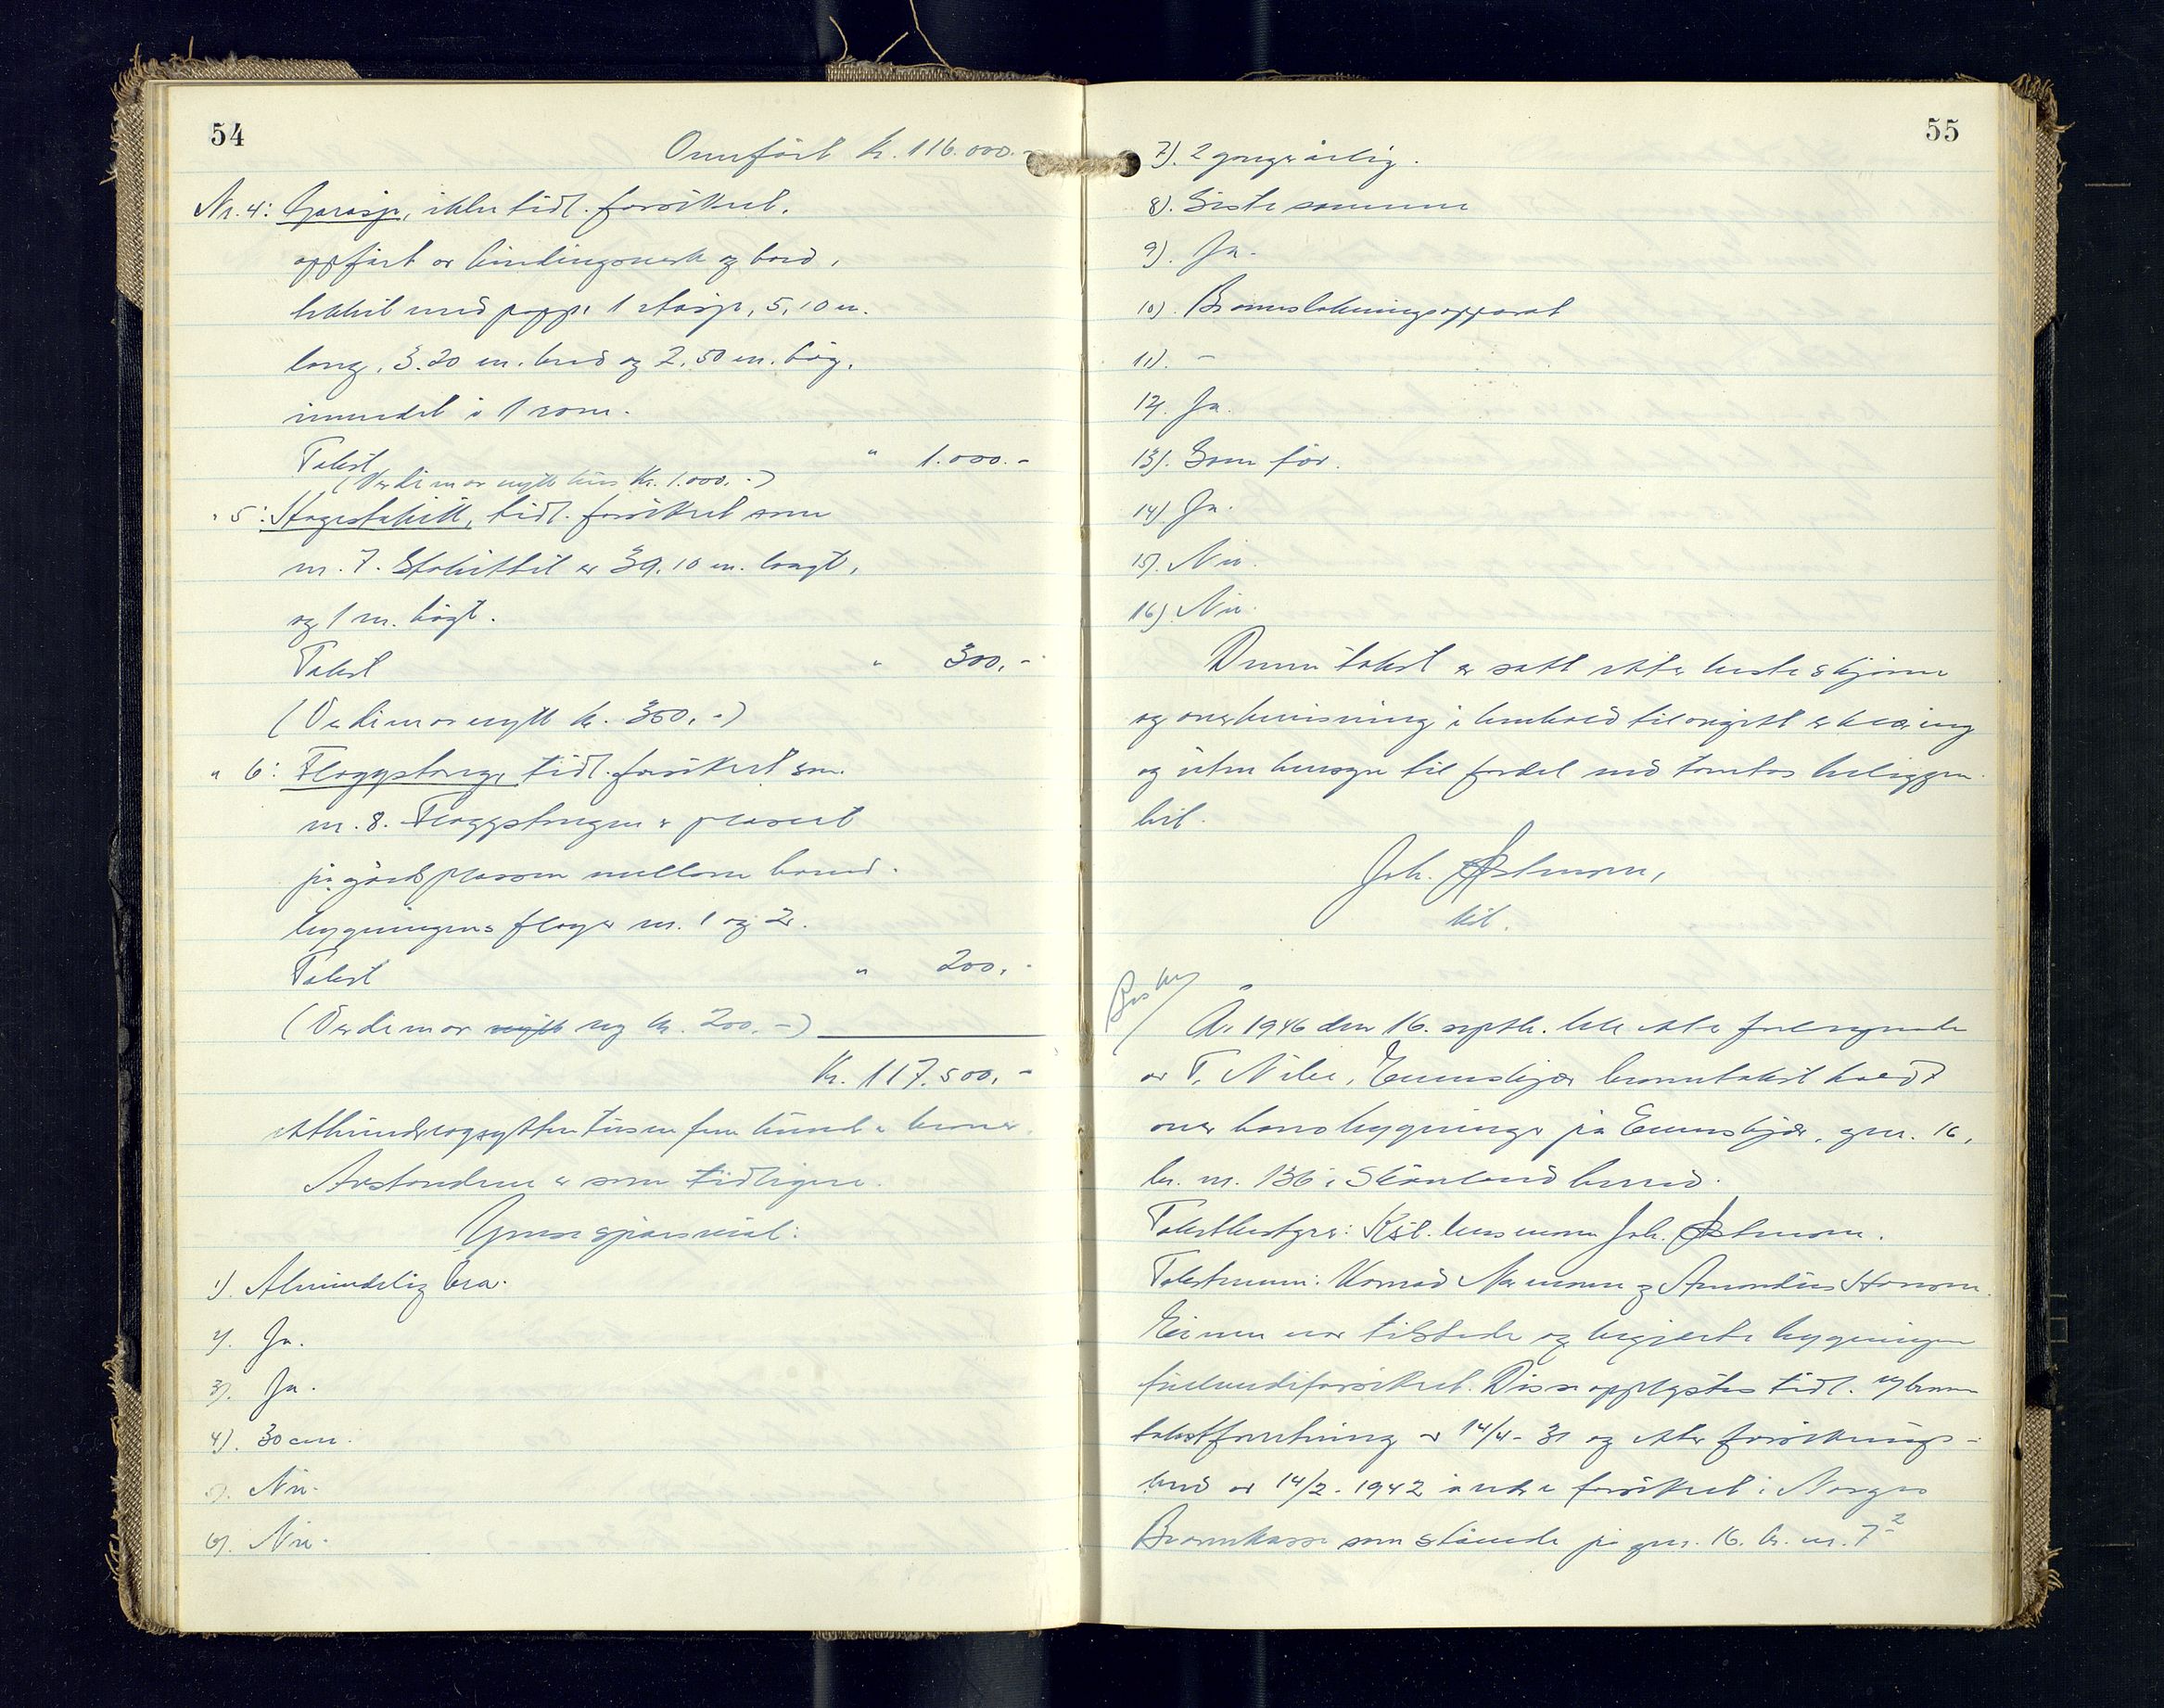 54
Overført kr. 116.000.-
Nr. 4: Garasje, ikke tidl. forsikret,
oppført av bindingsverk og bord,
tekket med papp. 1 etasje, 5,10 m.
lang, 3.20 m. bred og 2,50 m. høg,
innredet i 1 rom.
Takst " 1.000.-
(Verdi som nytt hus kr. 1.000.-)
" 5: Hagestakitt, tidl. forsikret som
nr. 7. Stakittet er 39,10 m. langt,
og 1 m. høgt.
Takst " 300,-
(Verdi som nytt kr. 300,-)
" 6: Flaggstang, tidl. forsikret som
nr. 8. Flaggstangen er plasert
på gårdsplassen mellom hoved-
bygningens fløyer nr. 1 og 2.
Takst " 200,-
(Verdi som nytt ny kr. 200.-)
Kr. 117.500,-
etthundreogsyttentusen fem hundre kroner.
Avstandene er som tidligere.
Ymse spørsmål:
1). Almindelig bra.
2). Ja.
3). Ja.
4). 30 cm.
5). Nei.
6). Nei.
55
7). 2 ganger årlig.
8). Siste sommer
9). Ja.
10). Brannslukningsapparat
11). -
12). Ja.
13). Som før.
14). Ja.
15). Nei.
16). Nei.
Denne takst er satt etter beste skjønn
og overbevisning i henhold til avgitt erklæring
og uten hensyn til fordel ved tomtas beliggen-
het.
Joh.
År 1946 den 16. septbr. ble etter forlangende
av T. Evenskjær branntakst holdt
over hans bygninger på Evenskjær, gnr. 16,
br. nr. 136 i Skånland herred.
Takstbestyrer: Kst. lensmann Joh.
Takstmenn: Konrad og Amandus Hansen.
Eieren var tilstede og begjærte bygningen
fullverdiforsikret. Disse opplystes tidl. ved brann-
takstforretning av 14/4-31 og etter forsiknings-
bud av 14/2-1942 å være forsikret i Norges
Brannkasse som stående på gnr. 16. br. nr. 7²